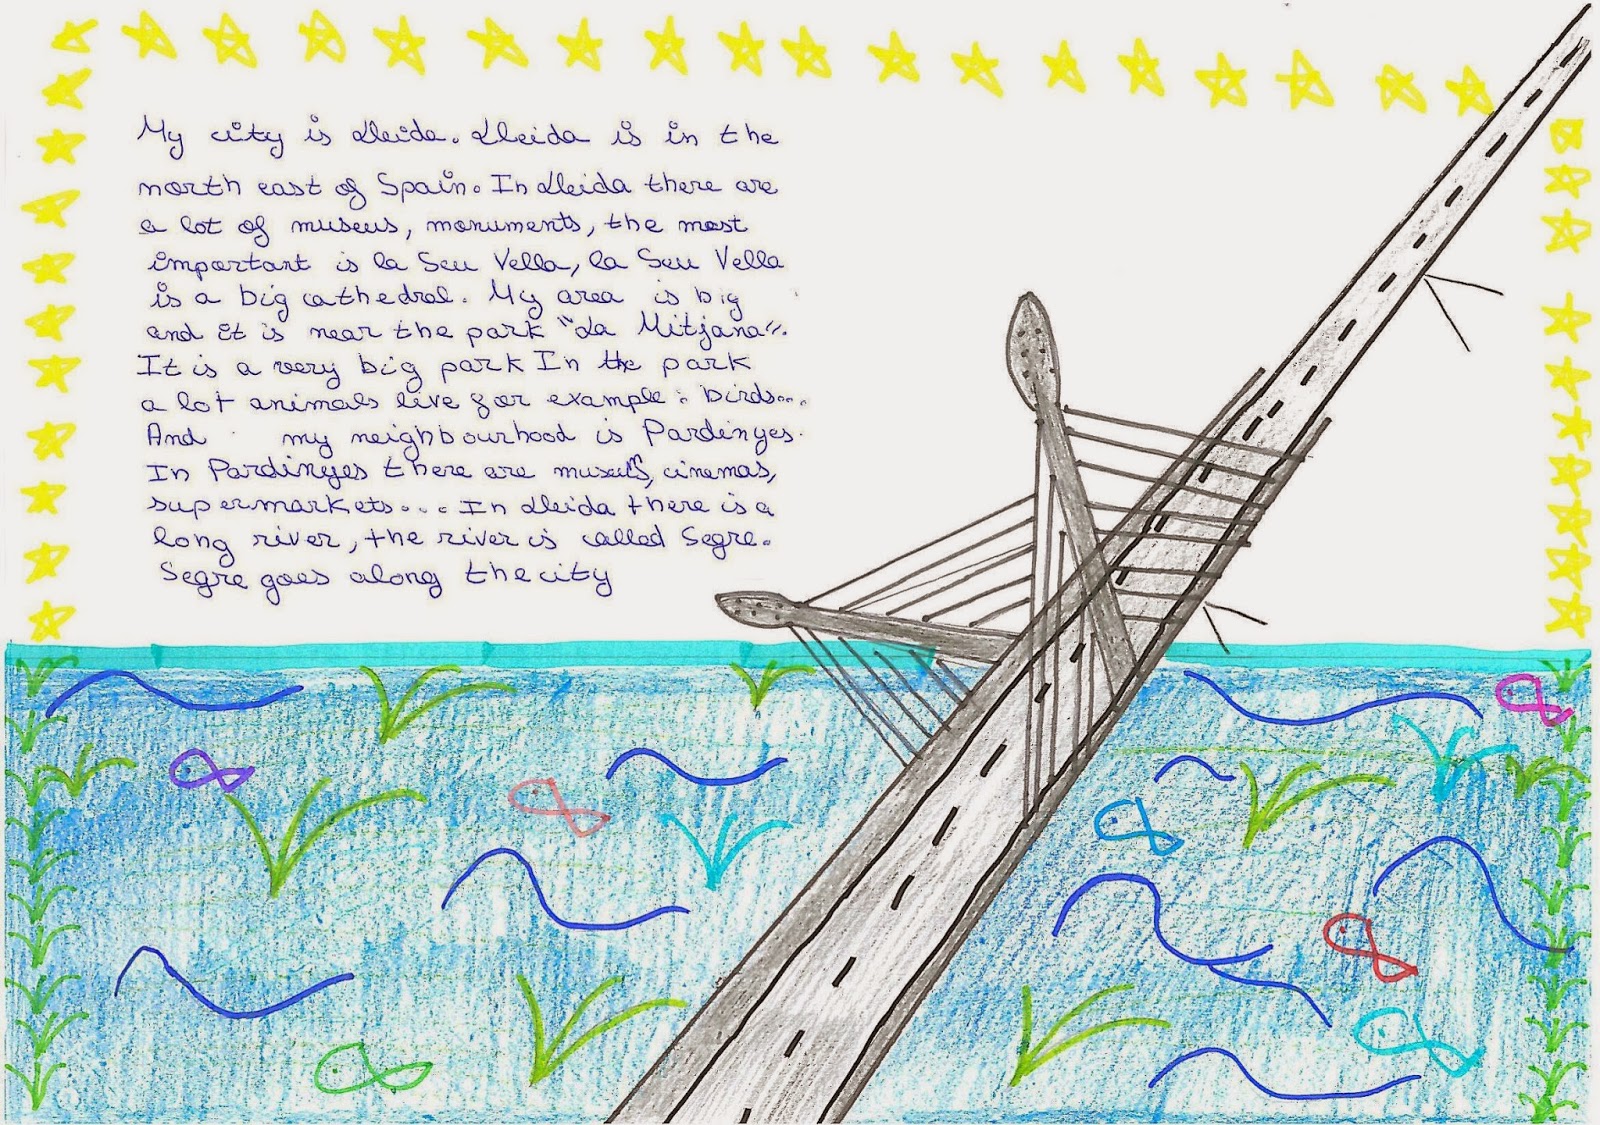 My city is Lleida. Lleida is in the
north east of Spain. In Lleida there are
a lot of museus, monuments, the most
important is la Seu Vella, la Seu Vella
is a big cathedral. My area is big
and it is near the park "La Mitjana".
It is a very big park In the park
a lot animals live for example: birds...
And my neighbourhood is Pardinyes.
In Pardinyes there are museums, cinemas,
supermarkets... In Lleida there is a
long river, the river is called Segre.
Segre goes along the city